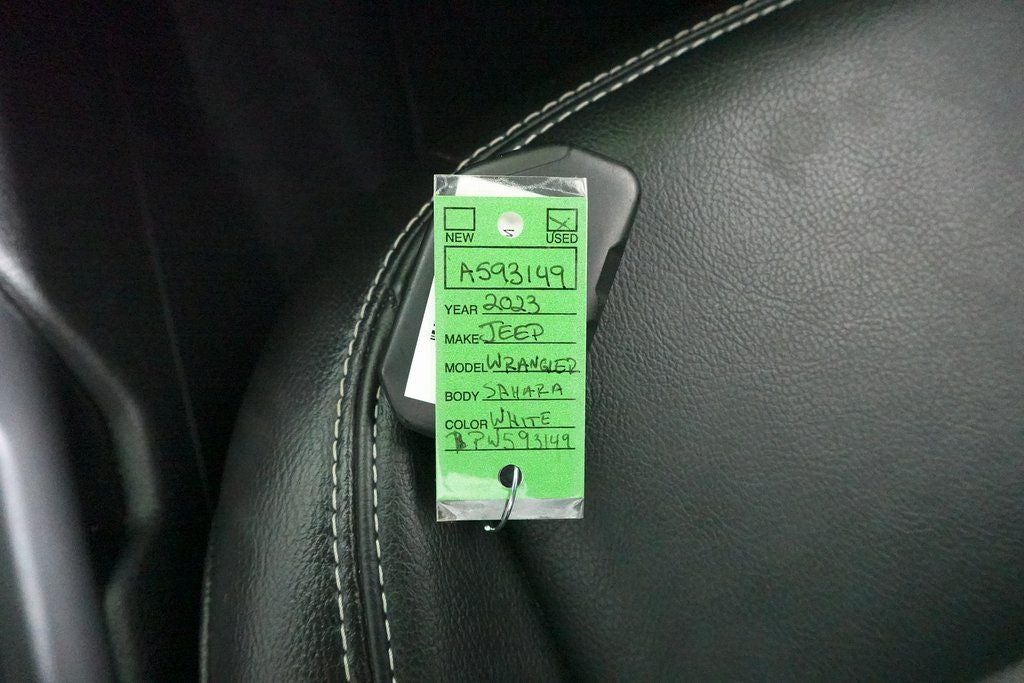 NEW USED
A593149
YEAR 2023
MAKE JEEP
MODEL WRANGLER
BODY SAHARA
COLOR WHITE
PW593149